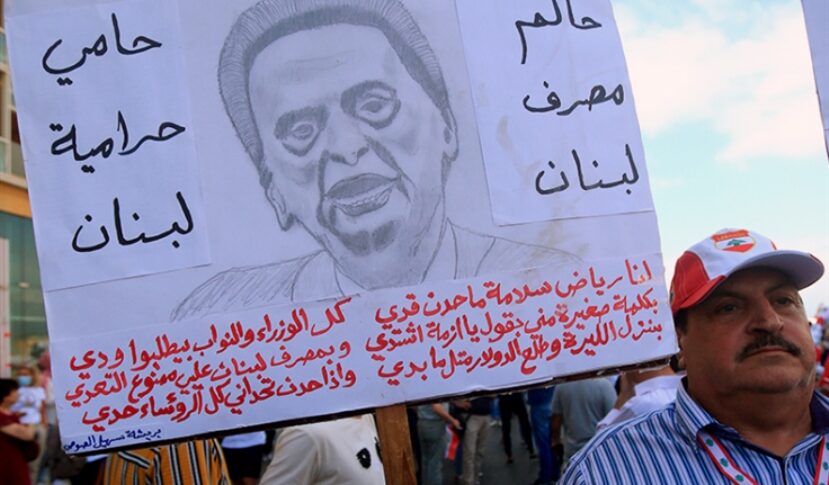 حاكم
مصرف
لبنان
حامي
حرامية
لبنان
انا رياض سلامة ما حدن قدي
بكلمة صغيرة مني بقول يا ازمة اشتدي
بنزل الليرة وطلع الدولار متل ما بدي
كل الوزراء والنواب بيطلبوا ودي
وبمصرف لبنان علي ممنوع التعدي
واذا حدن تحداني كل الرؤساء حدي
بريشة سهيل